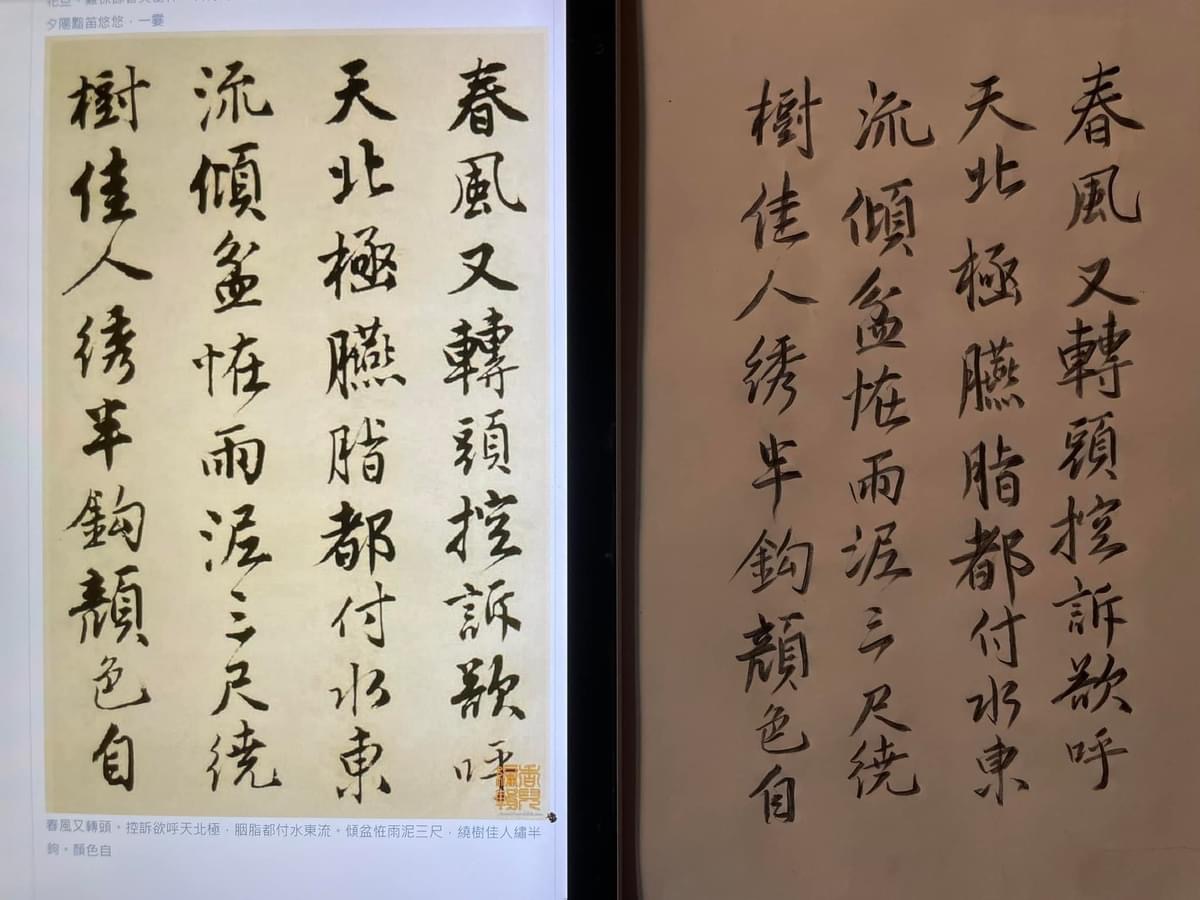 夕陽黯笛悠悠,一霎
春風又轉頭控訴歆呼
天北極臙脂都付水東
流傾盆恠雨泥三尺繞
樹佳人綉半鈎顏色自
春風又轉頭。控訴欲呼天北極,胭脂都付水東流。傾盆恠雨泥三尺,繞樹佳人繡半
鉤。顏色自
春風又轉頭控訴歆呼
天北極臙脂都付水東
流傾盆恠雨泥三尺繞
樹佳人綉半鈎顏色自